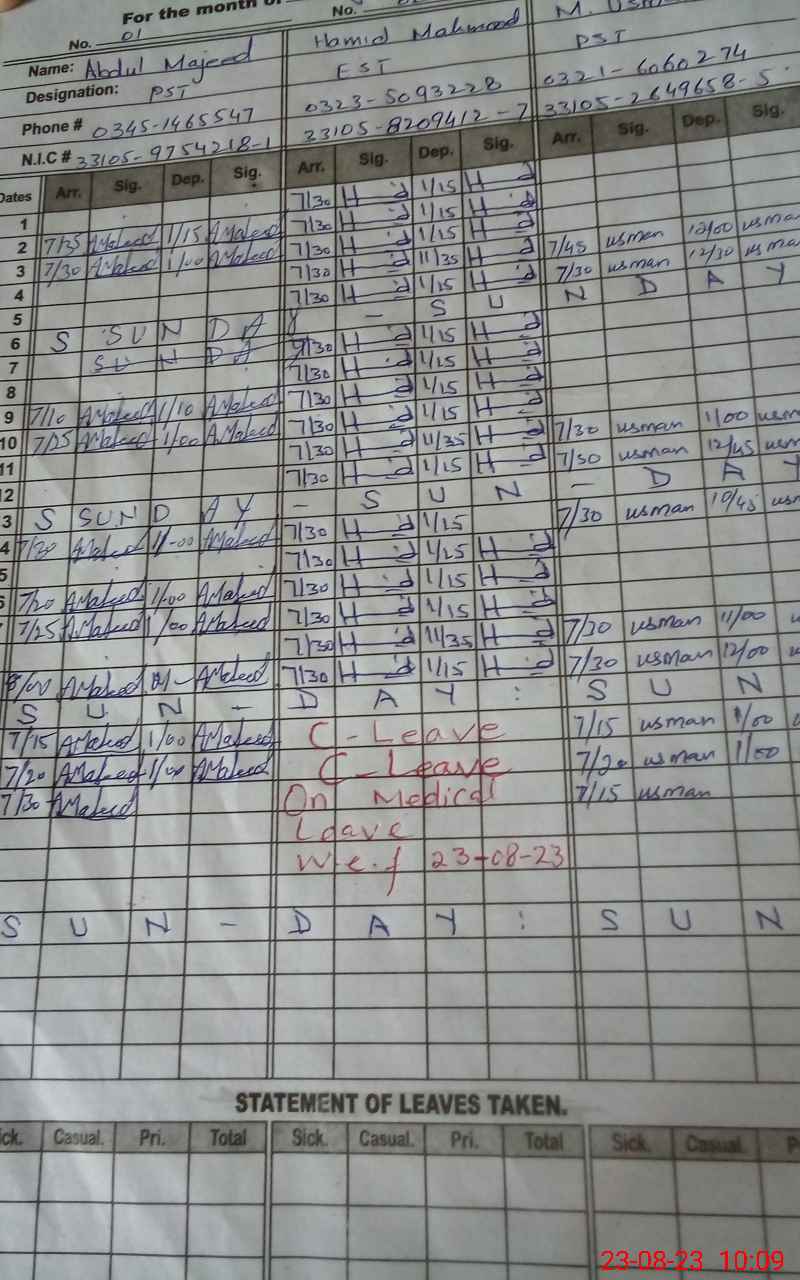 For the month of
No. 01
No.
Name: Abdul Majeed
Hamid Mahmood
M. Usm
Designation: PST
EST
PST
Phone # 0345-1465547
0323-5093228
0321-6060274
N.I.C # 33105-9754218-1
33105-8209412-7
33105-2649658-5
Dates Arr. Sig. Dep. Sig. Arr. Sig. Dep. Sig. Arr. Sig. Dep. Sig.
7/30 H d 1/15 H d
1 7/30 H d 1/15 H d
2 7/35 AMajeed 1/15 AMajeed 7/30 H d 1/15 H d 7/45 usman 12/00 usma
3 7/30 AMajeed 1/00 AMajeed 7/30 H d 11/35 H d 7/30 usman 12/30 usma
4 7/30 H d 1/15 H d
5 S SUN D A Y - S U N D A Y
6 SUNDAY 7/30 H d 1/15 H d
7 7/30 H d 1/15 H d
8 7/30 H d 1/15 H d
9 7/10 AMajeed 1/10 AMajeed 7/30 H d 1/15 H d
10 7/25 AMajeed 1/00 AMajeed 7/30 H d 11/35 H d 7/30 usman 1/00 usm
11 7/30 H d 1/15 H d 7/50 usman 12/45 usm
12 S SUN D AY - S U N - D A Y
3 7/30 AMajeed 1/-00 AMajeed 7/30 H d 1/15 7/30 usman 10/45 usm
4 7/30 H d 1/15 H d
5 7/20 AMajeed 1/00 AMajeed 7/30 H d 1/15 H d
6 7/25 AMajeed 1/00 AMajeed 7/30 H d 1/15 H d
7/30 H d 11/35 H d 7/30 usman 11/00 u
8/00 AMajeed AMajeed 7/30 H d 1/15 H d 7/30 usman 12/00 u
S U N - D A Y : S U N
7/15 AMajeed 1/00 AMajeed C-Leave 7/15 usman 1/00 u
7/20 AMajeed 1/00 AMajeed C-Leave 7/20 usman 1/00
7/30 AMajeed On Medical 7/15 usman
Leave
W.e.f 23-08-23
S U N - D A Y : S U N
STATEMENT OF LEAVES TAKEN.
ick. Casual. Pri. Total Sick. Casual. Pri. Total Sick. Casual. P
23-08-23 10:09